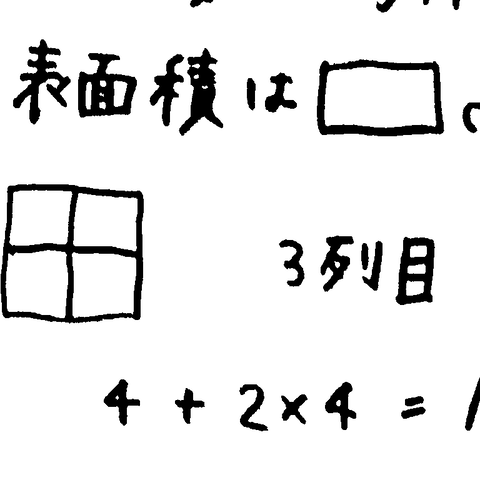 表面積は□
3列目
4 + 2×4 =